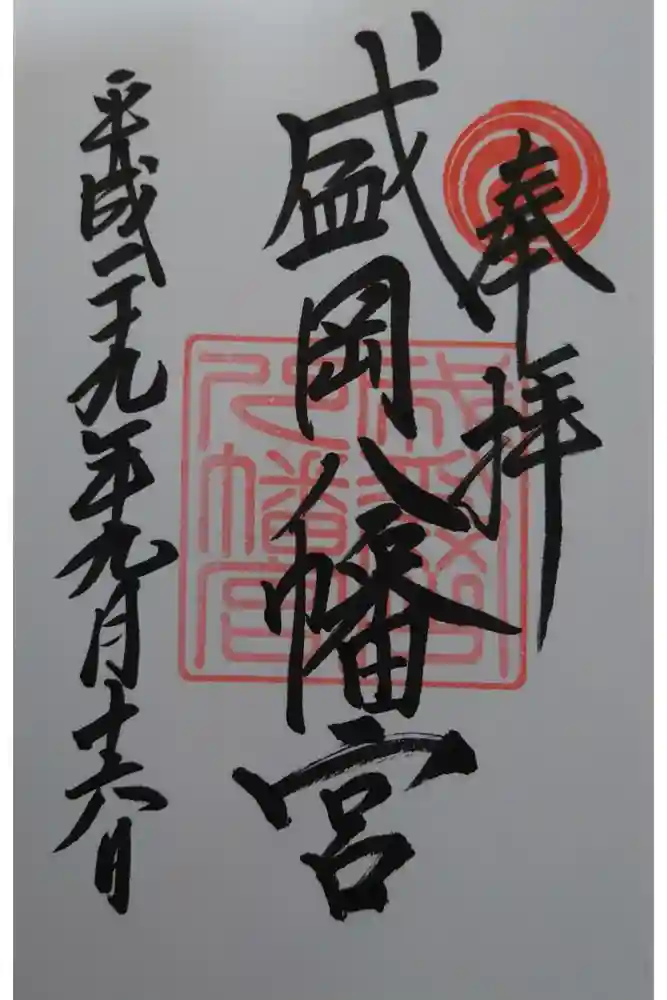 奉拝
盛岡八幡宮
平成二十九年九月十六日
盛岡八幡宮